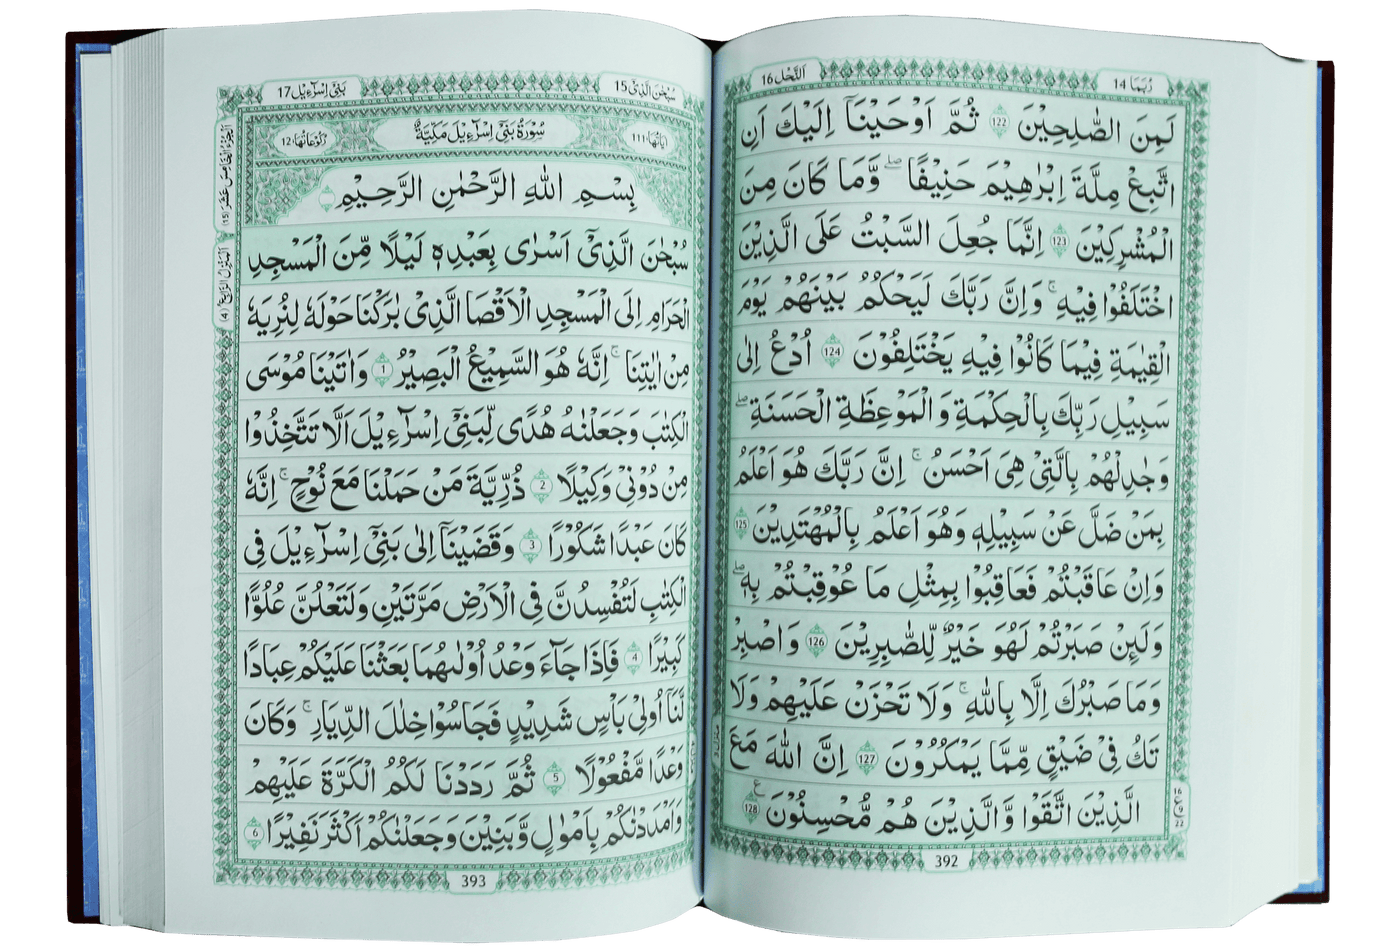 رُبَمَا 14
اَلنَّحْل 16
لَمِنَ الصّٰلِحِيْنَ 122 ثُمَّ اَوْحَيْنَاۤ اِلَيْكَ اَنِ
اتَّبِعْ مِلَّةَ اِبْرٰهِيْمَ حَنِيْفًا ؕ وَّمَا كَانَ مِنَ
الْمُشْرِكِيْنَ 123 اِنَّمَا جُعِلَ السَّبْتُ عَلَى الَّذِيْنَ
اخْتَلَفُوْا فِيْهِ ۚ وَاِنَّ رَبَّكَ لَيَحْكُمُ بَيْنَهُمْ يَوْمَ
الْقِيٰمَةِ فِيْمَا كَانُوْا فِيْهِ يَخْتَلِفُوْنَ 124 اُدْعُ اِلٰى
سَبِيْلِ رَبِّكَ بِالْحِكْمَةِ وَ الْمَوْعِظَةِ الْحَسَنَةِ ۖ
وَجَادِلْهُمْ بِالَّتِيْ هِيَ اَحْسَنُ ۚ اِنَّ رَبَّكَ هُوَ اَعْلَمُ
بِمَنْ ضَلَّ عَنْ سَبِيْلِهٖ وَهُوَ اَعْلَمُ بِالْمُهْتَدِيْنَ 125
وَاِنْ عَاقَبْتُمْ فَعَاقِبُوْا بِمِثْلِ مَا عُوْقِبْتُمْ بِهٖ ۖ
وَلَئِنْ صَبَرْتُمْ لَهُوَ خَيْرٌ لِّلصّٰبِرِيْنَ 126 وَاصْبِرْ
وَمَا صَبْرُكَ اِلَّا بِاللّٰهِ ۚ وَلَا تَحْزَنْ عَلَيْهِمْ وَلَا
تَكُ فِيْ ضَيْقٍ مِّمَّا يَمْكُرُوْنَ 127 اِنَّ اللّٰهَ مَعَ
الَّذِيْنَ اتَّقَوْا وَّالَّذِيْنَ هُمْ مُّحْسِنُوْنَ 128
16
ع 9
22
392
سُبْحٰنَ الَّذِيْ 15
بَنِيْٓ اِسْرَآءِيْل 17
اٰيَاتُهَا 111
سُوْرَةُ بَنِيْٓ اِسْرَآءِيْلَ مَكِّيَّةٌ
رُكُوْعَاتُهَا 12
بِسْمِ اللّٰهِ الرَّحْمٰنِ الرَّحِيْمِ
سُبْحٰنَ الَّذِيْٓ اَسْرٰى بِعَبْدِهٖ لَيْلًا مِّنَ الْمَسْجِدِ
الْحَرَامِ اِلَى الْمَسْجِدِ الْاَقْصَا الَّذِيْ بٰرَكْنَا حَوْلَهٗ لِنُرِيَهٗ
مِنْ اٰيٰتِنَا ؕ اِنَّهٗ هُوَ السَّمِيْعُ الْبَصِيْرُ 1 وَاٰتَيْنَا مُوْسَى
الْكِتٰبَ وَجَعَلْنٰهُ هُدًى لِّبَنِيْٓ اِسْرَآءِيْلَ اَلَّا تَتَّخِذُوْا
مِنْ دُوْنِيْ وَكِيْلًا 2 ذُرِّيَّةَ مَنْ حَمَلْنَا مَعَ نُوْحٍ ۚ اِنَّهٗ
كَانَ عَبْدًا شَكُوْرًا 3 وَقَضَيْنَآ اِلٰى بَنِيْٓ اِسْرَآءِيْلَ فِي
الْكِتٰبِ لَتُفْسِدُنَّ فِي الْاَرْضِ مَرَّتَيْنِ وَلَتَعْلُنَّ عُلُوًّا
كَبِيْرًا 4 فَاِذَا جَآءَ وَعْدُ اُوْلٰىهُمَا بَعَثْنَا عَلَيْكُمْ عِبَادًا
لَّنَآ اُولِيْ بَاْسٍ شَدِيْدٍ فَجَاسُوْا خِلٰلَ الدِّيَارِ ۚ وَكَانَ
وَعْدًا مَّفْعُوْلًا 5 ثُمَّ رَدَدْنَا لَكُمُ الْكَرَّةَ عَلَيْهِمْ
وَاَمْدَدْنٰكُمْ بِاَمْوَالٍ وَّبَنِيْنَ وَجَعَلْنٰكُمْ اَكْثَرَ نَفِيْرًا 6
اَلْجُزْءُ الْخَامِسُ عَشَرَ (15)
اَلْمَنْزِلُ الرَّابِعُ (4)
393